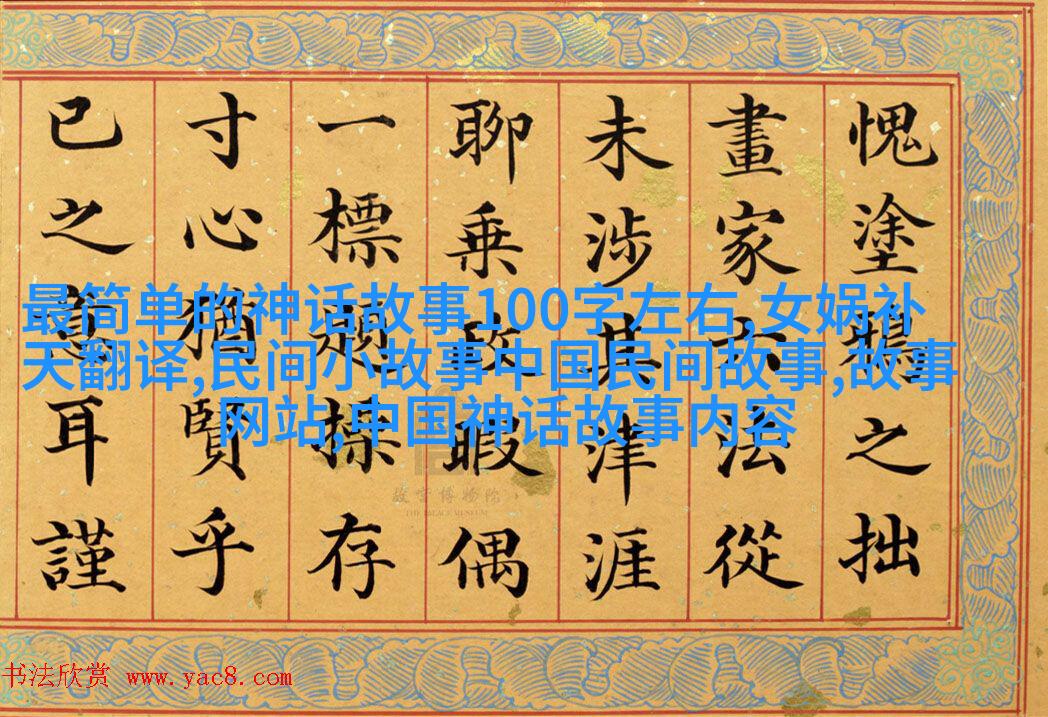 愧塗之拙
畫家六法從
未涉其津涯
聊乗政暇偶
一標題操存
寸心猶賢乎
已之意耳謹
最简单的神话故事100字左右,女娲补
天翻译,民间小故事中国民间故事,故事
网站,中国神话故事内容
故宫博物院
THE PALACE MUSEUM
书法欣赏 www.yac8.com